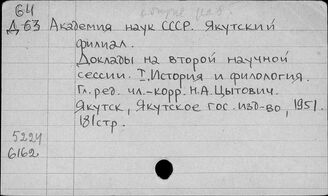 64
Д 63 Академия наук СССР. Якутский
филиал.
Доклады на второй научной
сессии. I. История и филология.
Гл. ред. чл.-корр. Н.А. Цытович.
Якутск, Якутское гос. изд-во, 1951.
181 стр.
5224
6162